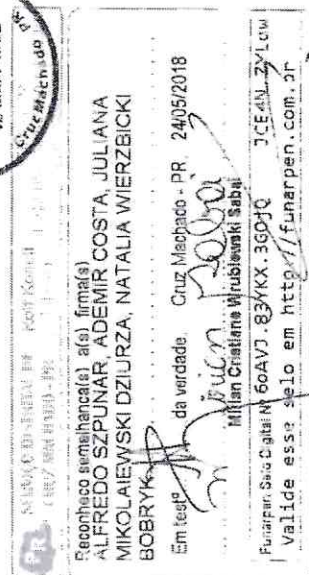 Cruz Machado PR
Reconheco semelhanca(a) a(s) firma(s)
ALFREDO SZPUNAR, ADEMIR COSTA, JULIANA
MIKOLAIEWSKI DZIURZA, NATALIA WIERZBICKI
BOBRYK
Em testº da verdade. Cruz Machado - PR, 24/05/2018
Mirian Cristiane Wrublewski Sabai
Funarpen Selo Digital Nº 6oAVJ 83YKX 3GOJQ
Valide esse selo em http://funarpen.com.br